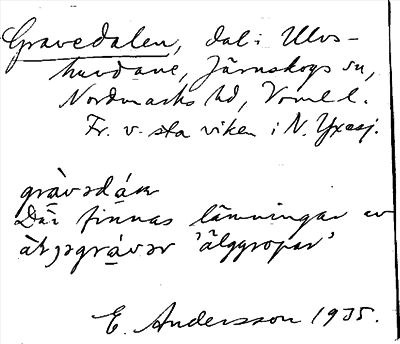 Gravedalen, dal i Ulvs-
hurdane, Järnskogs sn,
Nordmarks hd, Verml. l.
Fr. v. sta viken i N. Yxesj.
gràvədáɴ
Där finnas lämningar av
äɭjəgrávər 'älggropar'
E. Andersson 1935.